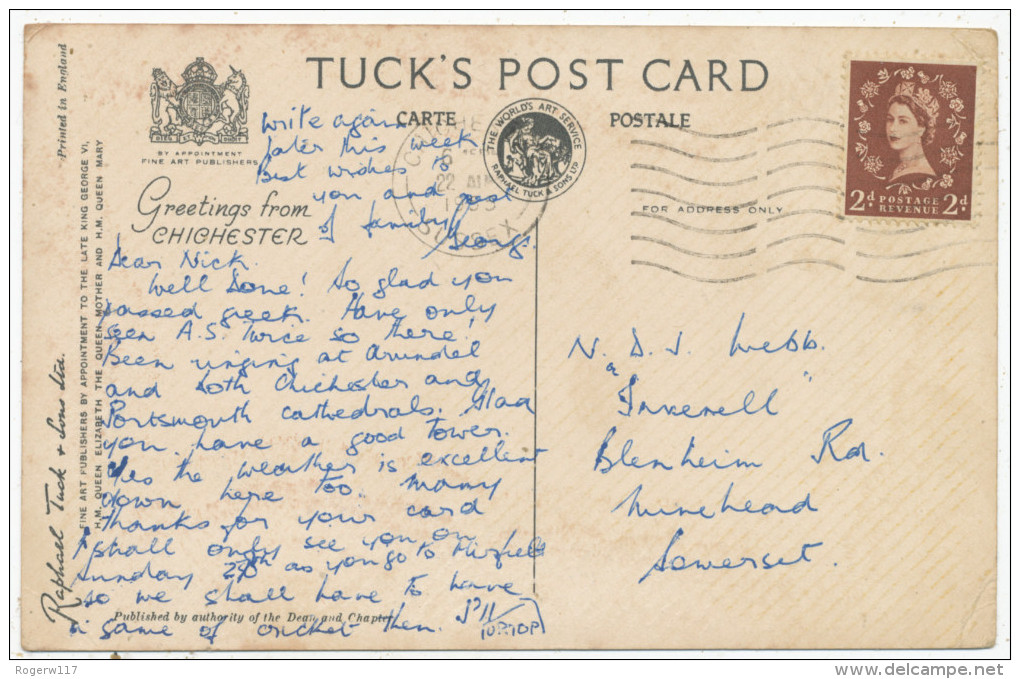 TUCK'S POST CARD
CARTE POSTALE
BY APPOINTMENT
FINE ART PUBLISHERS
THE WORLD'S ART SERVICE
RAPHAEL TUCK & SONS LTD
22 AU
SUSSEX
2d POSTAGE REVENUE 2d
FOR ADDRESS ONLY
Greetings from
CHICHESTER
Printed in England
FINE ART PUBLISHERS BY APPOINTMENT TO THE LATE KING GEORGE VI,
H.M. QUEEN ELIZABETH THE QUEEN MOTHER AND H.M. QUEEN MARY
Raphael Tuck & Sons Ltd.
Dear Nick.
Well Done! So glad you
passed greek. Have only
seen A.S. twice so there!
Been ringing at Arundel
and both Chichester and
Portsmouth cathedrals. Glad
you have a good tower.
Yes the weather is excellent
down here too. Many
thanks for your card
I shall only see you on
Sunday as you go to
so we shall have to have
a game of cricket then. I'll
TOP
write again
later this week
Best wishes to
you and rest
of family
George
Published by authority of the Dean and Chapter
N. D. J. Webb.
"Inverell"
Blenheim Rd.
Minehead
Somerset.
Rogerw117
delcampe.net